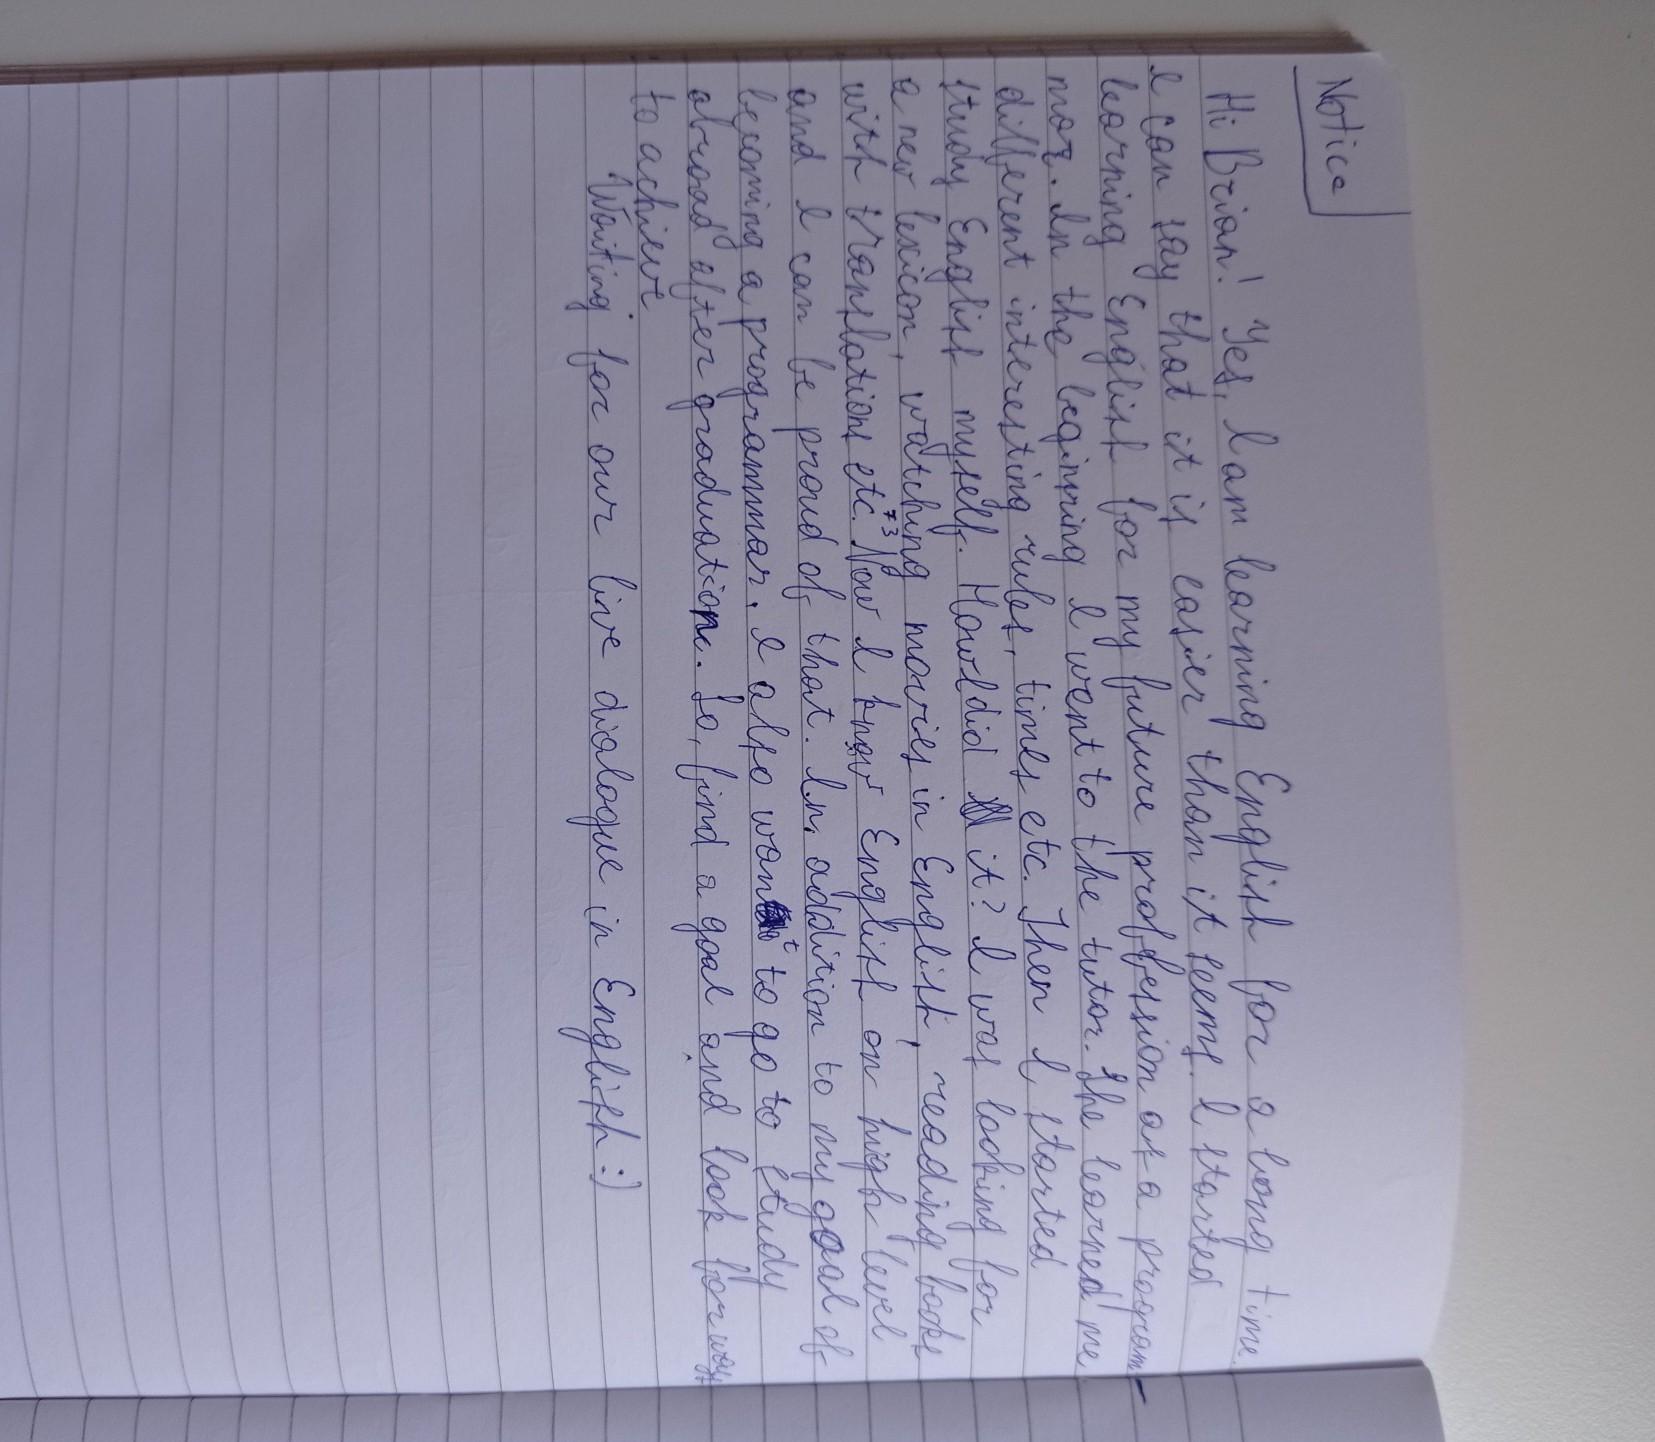 Notice
Hi Brian! Yes, I am learning English for a long time.
I can say that it is easier than it seems. I started
learning English for my future proffession as a program-
mar. In the beginning I went to the tutor. She learned me
different interesting rules, times etc. Then I started
study English myself. How I did it? I was looking for
a new lexicon, watching movies in English, reading books
with translations etc. Now I know English on high level
73
and I can be proud of that. In addition to my goal of
becoming a programmar, I also want to go to study
abroad after graduation. So, find a goal and look for ways
to achieve
Waiting for our live dialogue in English :)